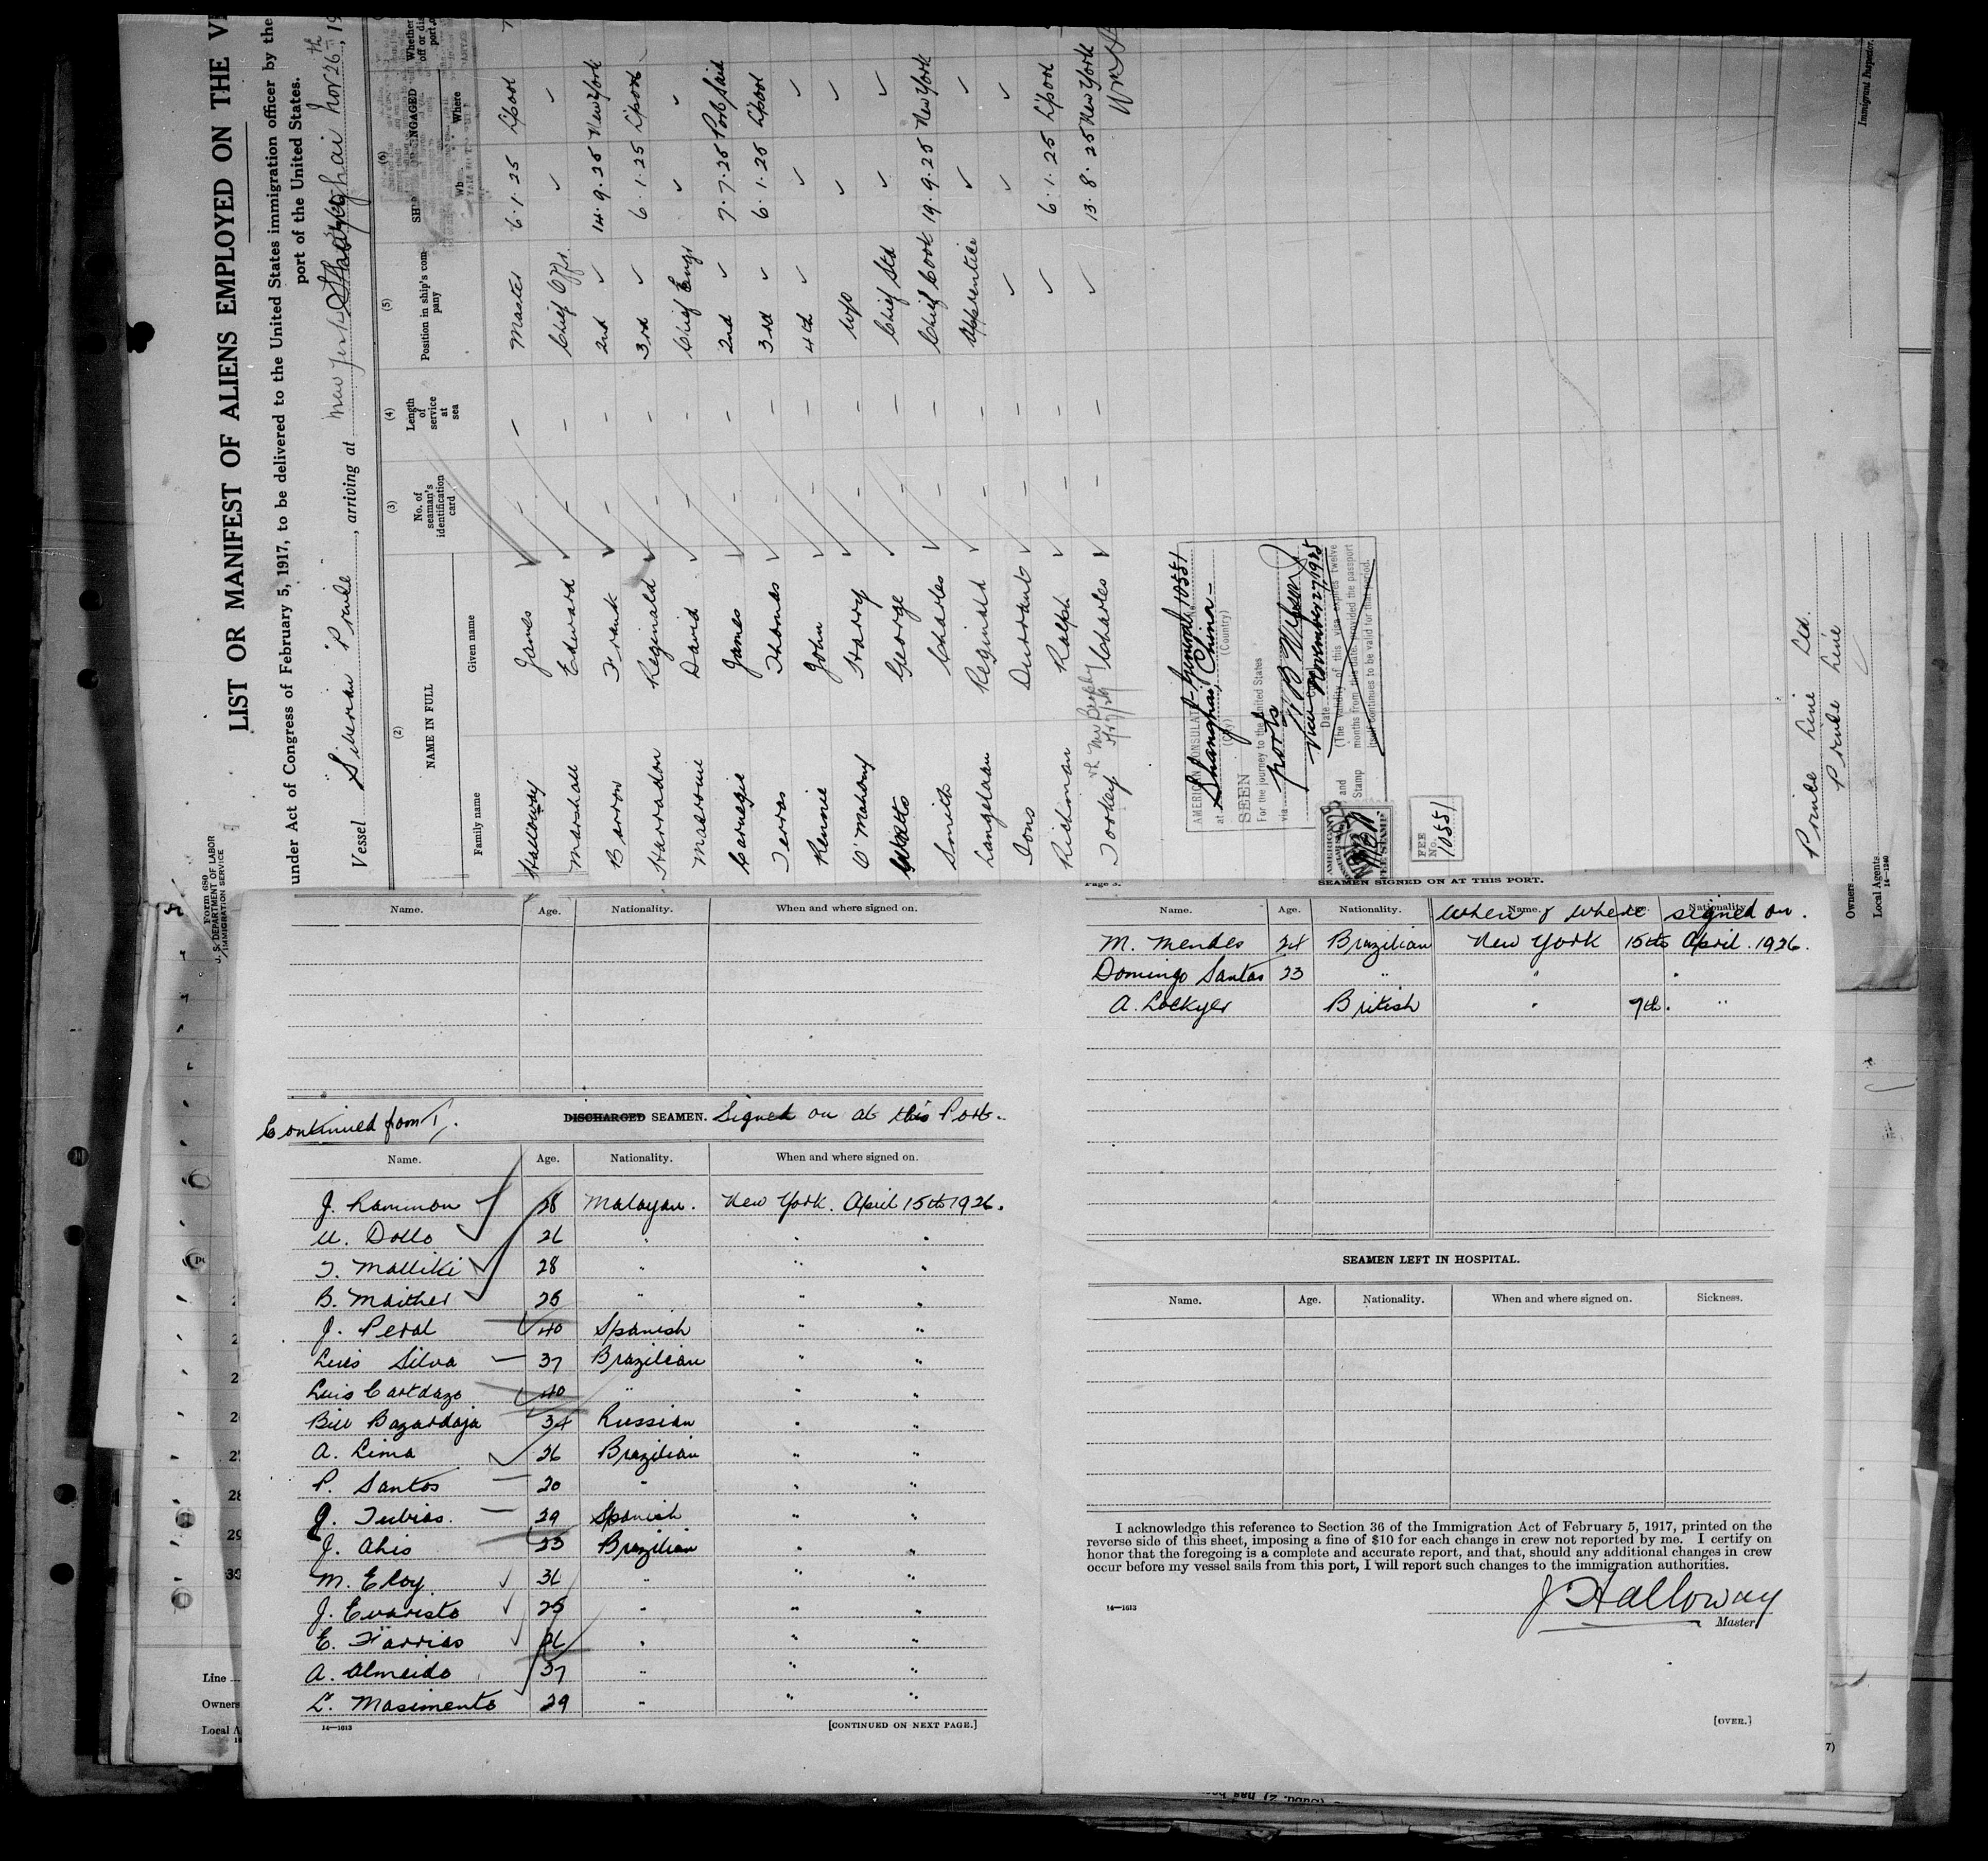 Form 680
U. S. DEPARTMENT OF LABOR
IMMIGRATION SERVICE
LIST OR MANIFEST OF ALIENS EMPLOYED ON THE
under Act of Congress of February 5, 1917, to be delivered to the United States immigration officer by the
port of the United States.
Vessel Siberian Prince, arriving at New York Shanghai Nov 26th, 19
(2) (3) (4) (5) (6)
NAME IN FULL
Family name Given name
No. of seaman's identification card
Length of service at sea
Position in ship's company
Where
Halloway James – – Master 6.1.25 L'pool
Marshall Edward – – Chief Offr. ✓ ✓
Barrow Frank – – 2nd ✓ 14.9.25 New York
Harradon Reginald – – 3rd ✓ 6.1.25 L'pool
David – – Chief Engr ✓ ✓
Carnegie James – – 2nd ✓ 7.7.25 Port Said
Terras Thomas – – 3rd ✓ 6.1.25 L'pool
Rennie John – – 4th ✓ ✓ ✓
O'Mahony Harry – – W/O ✓ ✓
Watts George – – Chief Std ✓ ✓
Smith Charles – – Chief Cook 19.9.25 New York
Langelaan Reginald – – Apprentice ✓ ✓
Ions Durrant – – ✓ ✓ ✓
Richman Ralph – – ✓ 6.1.25 L'pool
Torkey Charles – – ✓ 13.8.25 New York
AMERICAN CONSULATE General 10551
at Shanghai, China –
(City) (Country)
SEEN
For the journey to the United States
via ports
Vice
Date November 27, 1925
(The validity of this visa expires twelve
months from this date, provided the passport
itself continues to be valid for that period.
and
Stamp
AMERICAN
FEE STAMP
FEE
No. 10551
Prince Line Ltd.
Owners
Prince Line
Local Agents
14—1240
Immigrant Inspector.
Name. Age. Nationality. When and where signed on.
Continued from 1,
DISCHARGED SEAMEN. Signed on at this Port.
Name. Age. Nationality. When and where signed on.
J. Rammon 28 Malayan. New York. April 15th 1926.
U. Dollo 26 " " "
T. Malliki 28 " " "
B. Maither 25 " " "
J. Peral 40 Spanish " "
Luis Silva 37 Brazilian " "
Luis Cartdazo 40 " " "
Bill Bazardaja 34 Russian " "
A. Lima 26 Brazilian " "
P. Santos 20 " " "
J. Tubias. 29 Spanish " "
J. Ahis 23 Brazilian " "
M. Eloy 36 " " "
J. Evaristo 25 " " "
E. Farrias 26 " " "
A. Almeido 37 " " "
L. Masimento 29 " " "
14—1613
[CONTINUED ON NEXT PAGE.]
Page 3.
SEAMEN SIGNED ON AT THIS PORT.
Name. Age. Nationality. When & where signed on.
M. Mendes 24 Brazilian New York 15th April. 1926.
Domingo Santos 23 " " "
A. Lockyer British " 9th. "
SEAMEN LEFT IN HOSPITAL.
Name. Age. Nationality. When and where signed on. Sickness.
I acknowledge this reference to Section 36 of the Immigration Act of February 5, 1917, printed on the
reverse side of this sheet, imposing a fine of $10 for each change in crew not reported by me. I certify on
honor that the foregoing is a complete and accurate report, and that, should any additional changes in crew
occur before my vessel sails from this port, I will report such changes to the immigration authorities.
J Halloway
14—1613
Master
[OVER.]
28
29
30
Line
Owners
Local A